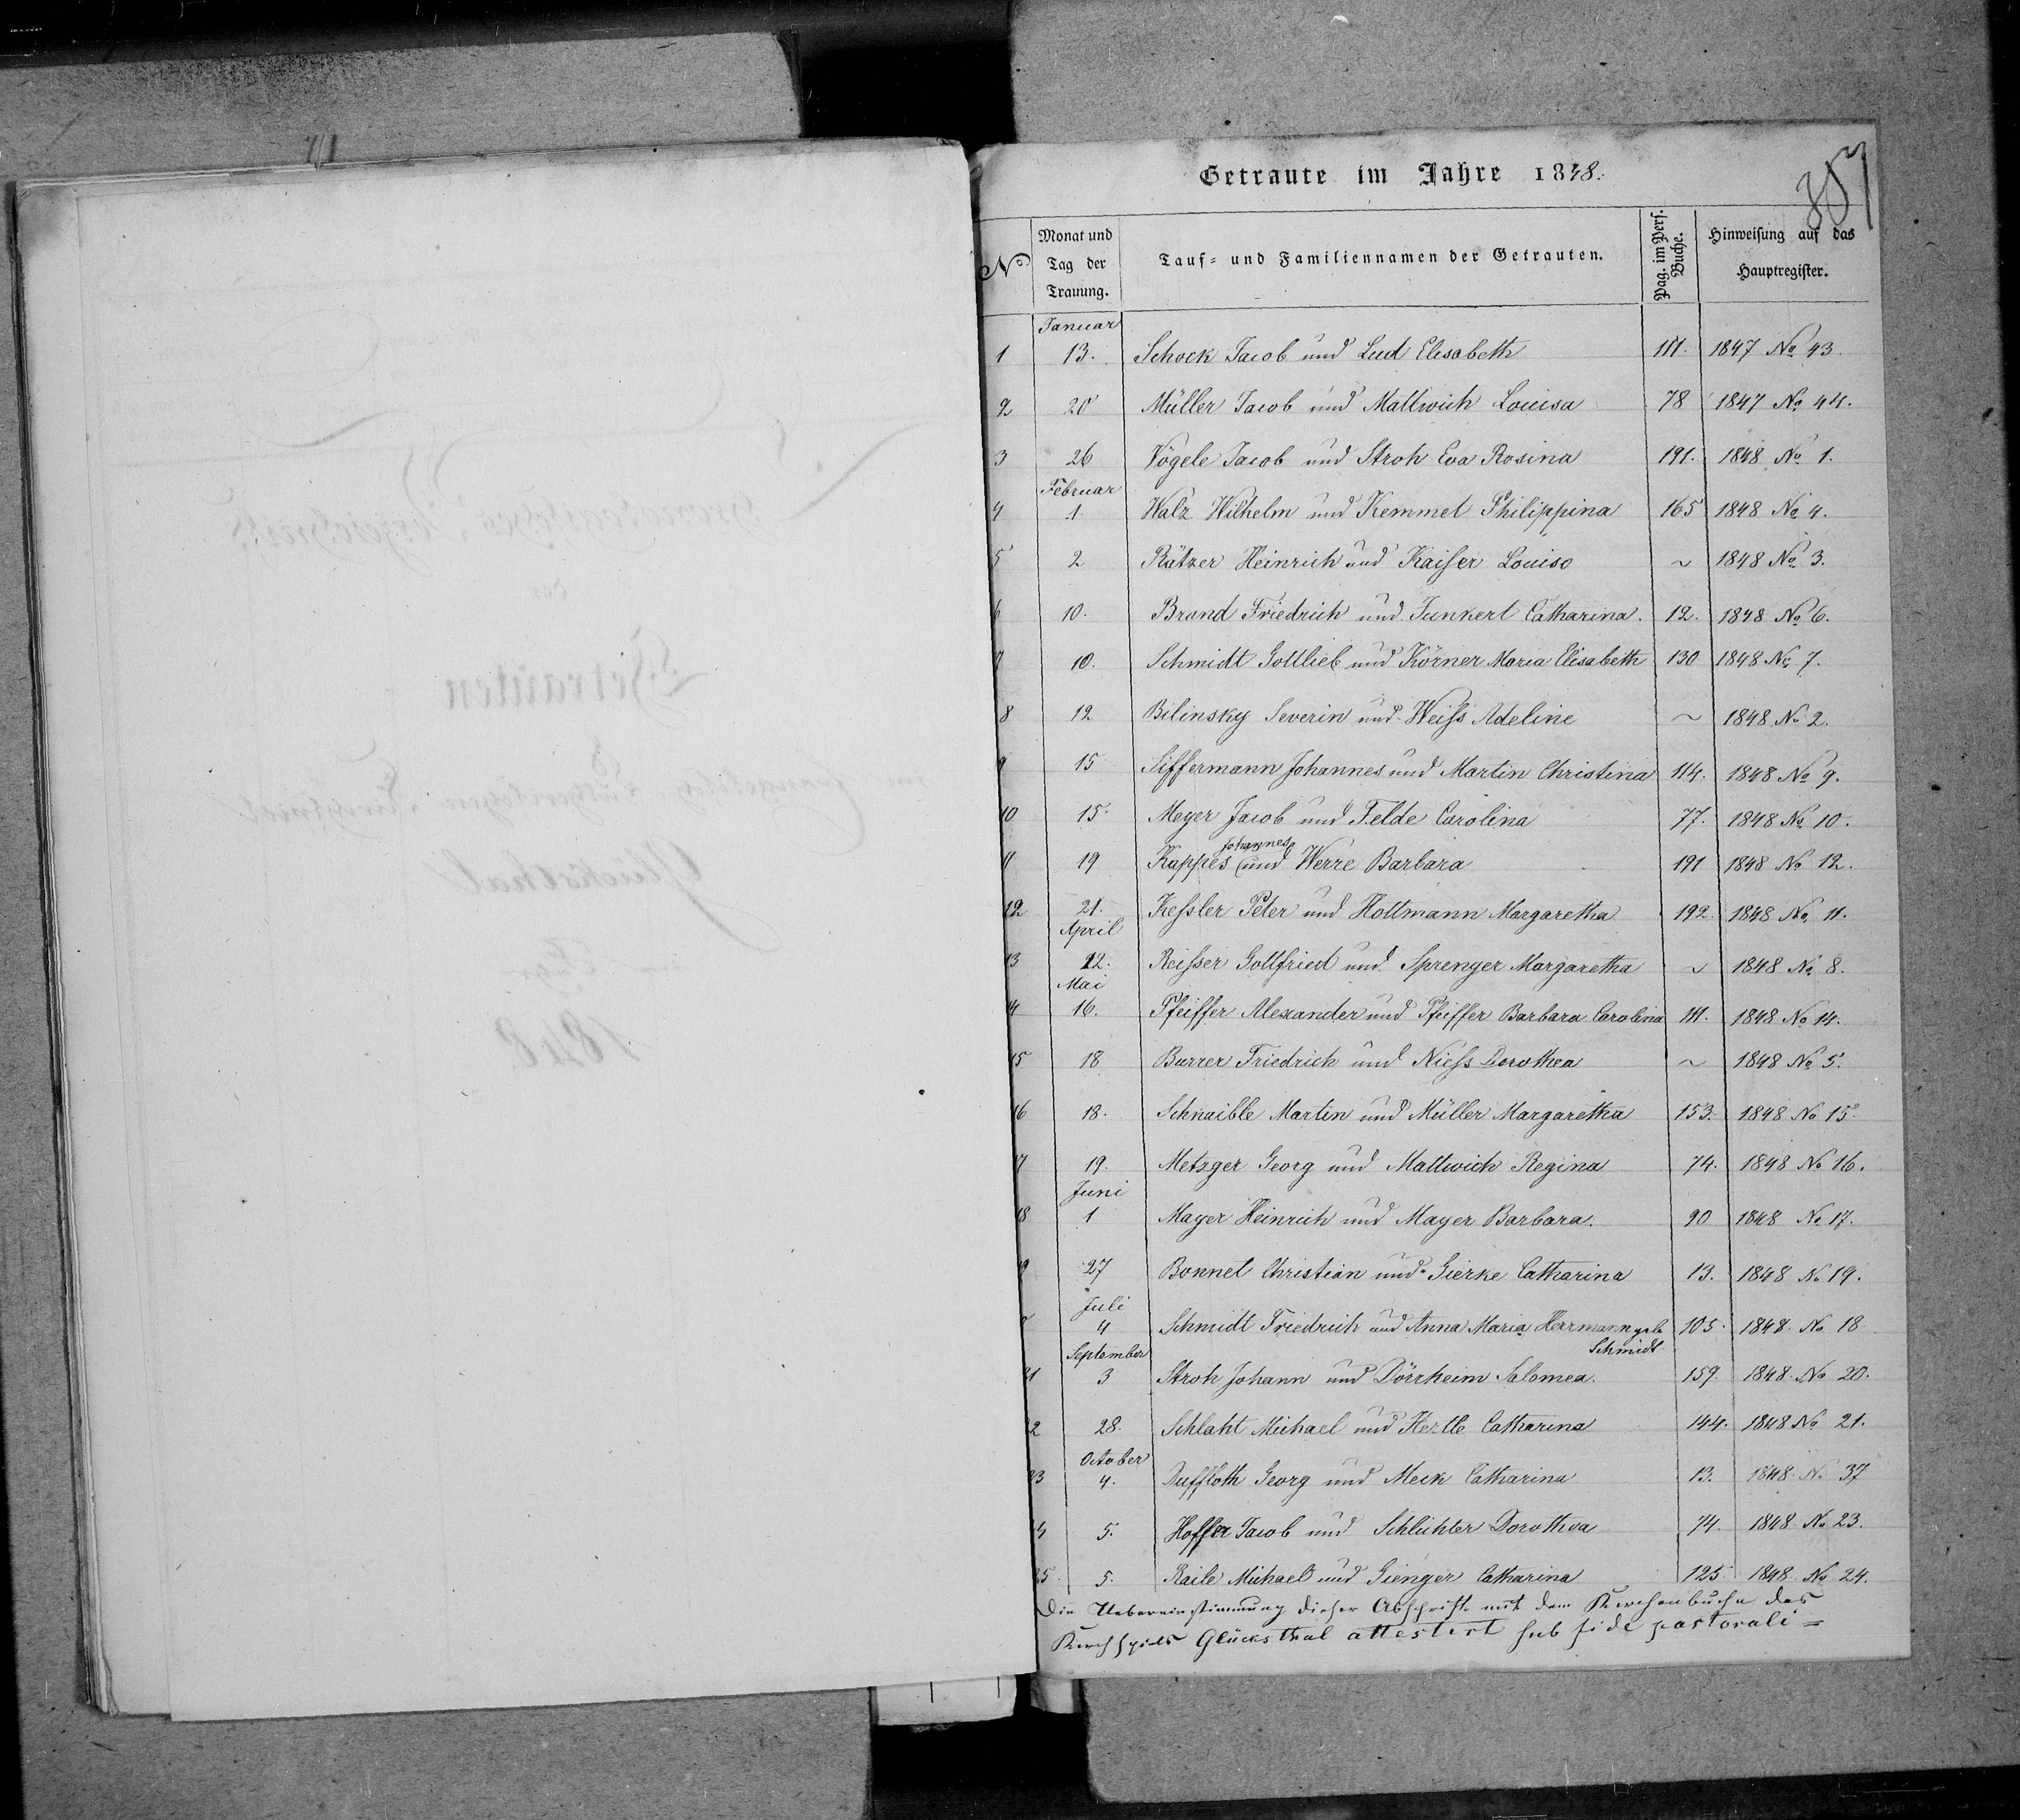 Getraute im Jahre 1848.
387
No
Monat und Tag der Trauung.
Tauf- und Familiennamen der Getrauten.
Pag. im Pers. Buche.
Hinweisung auf das Hauptregister.
Januar
1 13. Schock Jacob und Lud Elisabeth 111. 1847 No 43.
2 20 Müller Jacob und Mattwich Louisa 78 1847 No 44.
3 26 Vögele Jacob und Stroh Eva Rosina 191. 1848 No 1.
Februar
4 1 Walz Wilhelm und Kemmel Philippina 165 1848 No 4.
5 2 Rätzer Heinrich und Kaiser Louise ~ 1848 No 3.
6 10. Brand Friedrich und Junkert Catharina. 12. 1848 No 6.
7 10. Schmidt Gottlieb und Körner Maria Elisabeth 130 1848 No 7.
8 12 Bilinsky Severin und Weiss Adeline ~ 1848 No 2.
9 15 Siffermann Johannes und Martin Christina 114. 1848 No 9.
10 15. Meyer Jacob und Felde Carolina 77. 1848 No 10.
11 19 Kappes Johannes und Werre Barbara 191 1848 No 12.
12 21. Kessler Peter und Hottmann Margaretha 192. 1848 No 11.
April
13 22. Reisser Gottfried und Sprenger Margaretha ~ 1848 No 8.
Mai
14 16. Pfeiffer Alexander und Pfeiffer Barbara Carolina 111. 1848 No 14.
15 18 Burrer Friedrich und Niess Dorothea ~ 1848 No 5.
16 18. Schnaible Martin und Müller Margaretha 153. 1848 No 15.
17 19. Metzger Georg und Mattwich Regina 74. 1848 No 16.
Juni
18 1 Mayer Heinrich und Mayer Barbara. 90 1848 No 17.
9 27 Bonnet Christian und Gierke Catharina 13. 1848 No 19.
Juli
4 Schmidt Friedrich und Anna Maria Herrmann geb Schmidt 105. 1848. No 18
September
21 3 Stroh Johann und Dörrheim Salomea. 159. 1848. No 20.
2 28. Schlaht Michael und Hertle Catharina 144. 1848 No 21.
October
23 4. Duffloth Georg und Meck Catharina 13. 1848. No 37
4 5. Hoffer Jacob und Schlichter Dorothea 74. 1848 No 23.
25. 5. Raile Michael und Gienger Catharina 125 1848 No 24.
Die Uebereinstimmung dieser Abschrift mit dem Kirchenbuche des
Kirchspiels Glücksthal attestirt sub fide pastorali =